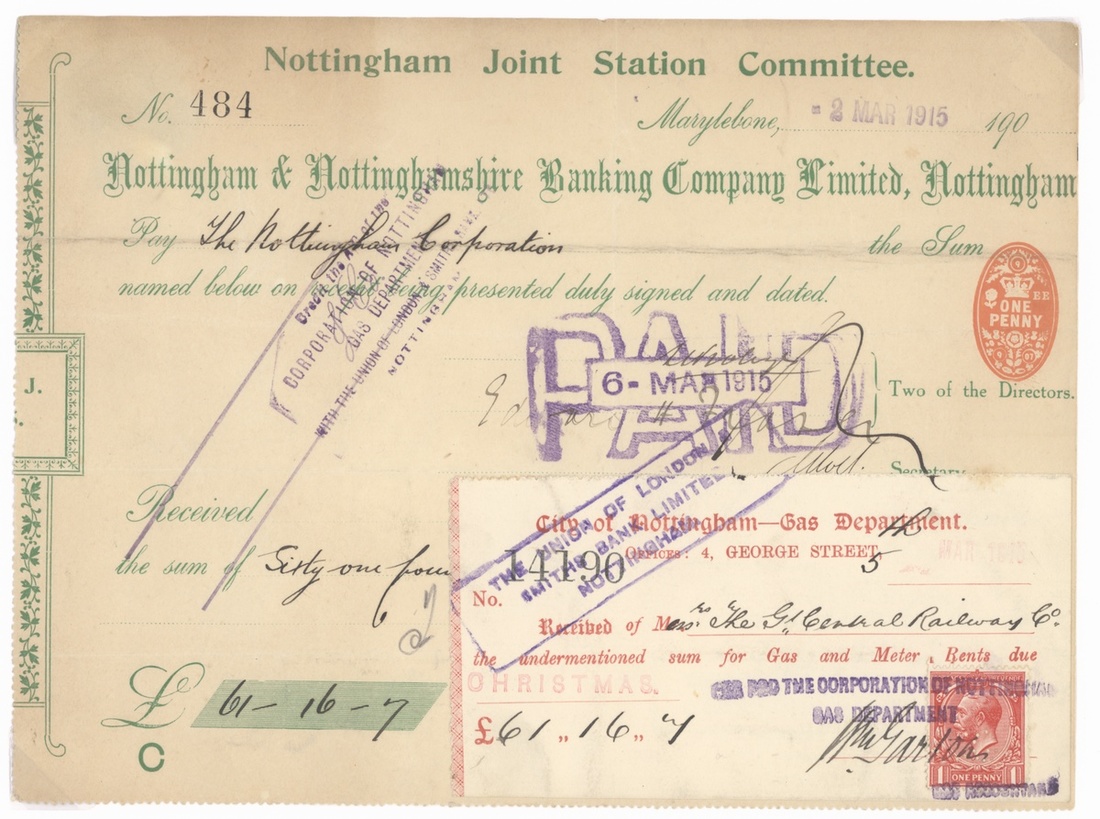 Nottingham Joint Station Committee.
No. 484
Marylebone, - 2 MAR 1915 190
Nottingham & Nottinghamshire Banking Company Limited, Nottingham
Pay The Nottingham Corporation the Sum
named below on receipt being presented duly signed and dated.
Credit the A/c of the
CORPORATION OF NOTTINGHAM
GAS DEPARTMENT
WITH THE UNION OF LONDON & SMITHS BANK
NOTTINGHAM
EE
ONE
PENNY
PAID
6 - MAR 1915
PAID
Edward
Two of the Directors.
Secretary
J.
Received
the sum of Sixty one
£ 61 - 16 - 7
C
THE UNION OF LONDON
SMITHS BANK LIMITED
NOTTINGHAM
City of Nottingham—Gas Department.
OFFICES: 4, GEORGE STREET,
No. 14190
5
Received of Messrs The Gt Central Railway Co.
the undermentioned sum for Gas and Meter Rents due
CHRISTMAS.
£61 „ 16 „ 7
FOR THE CORPORATION OF NOTTINGHAM
GAS DEPARTMENT
1 ONE PENNY 1